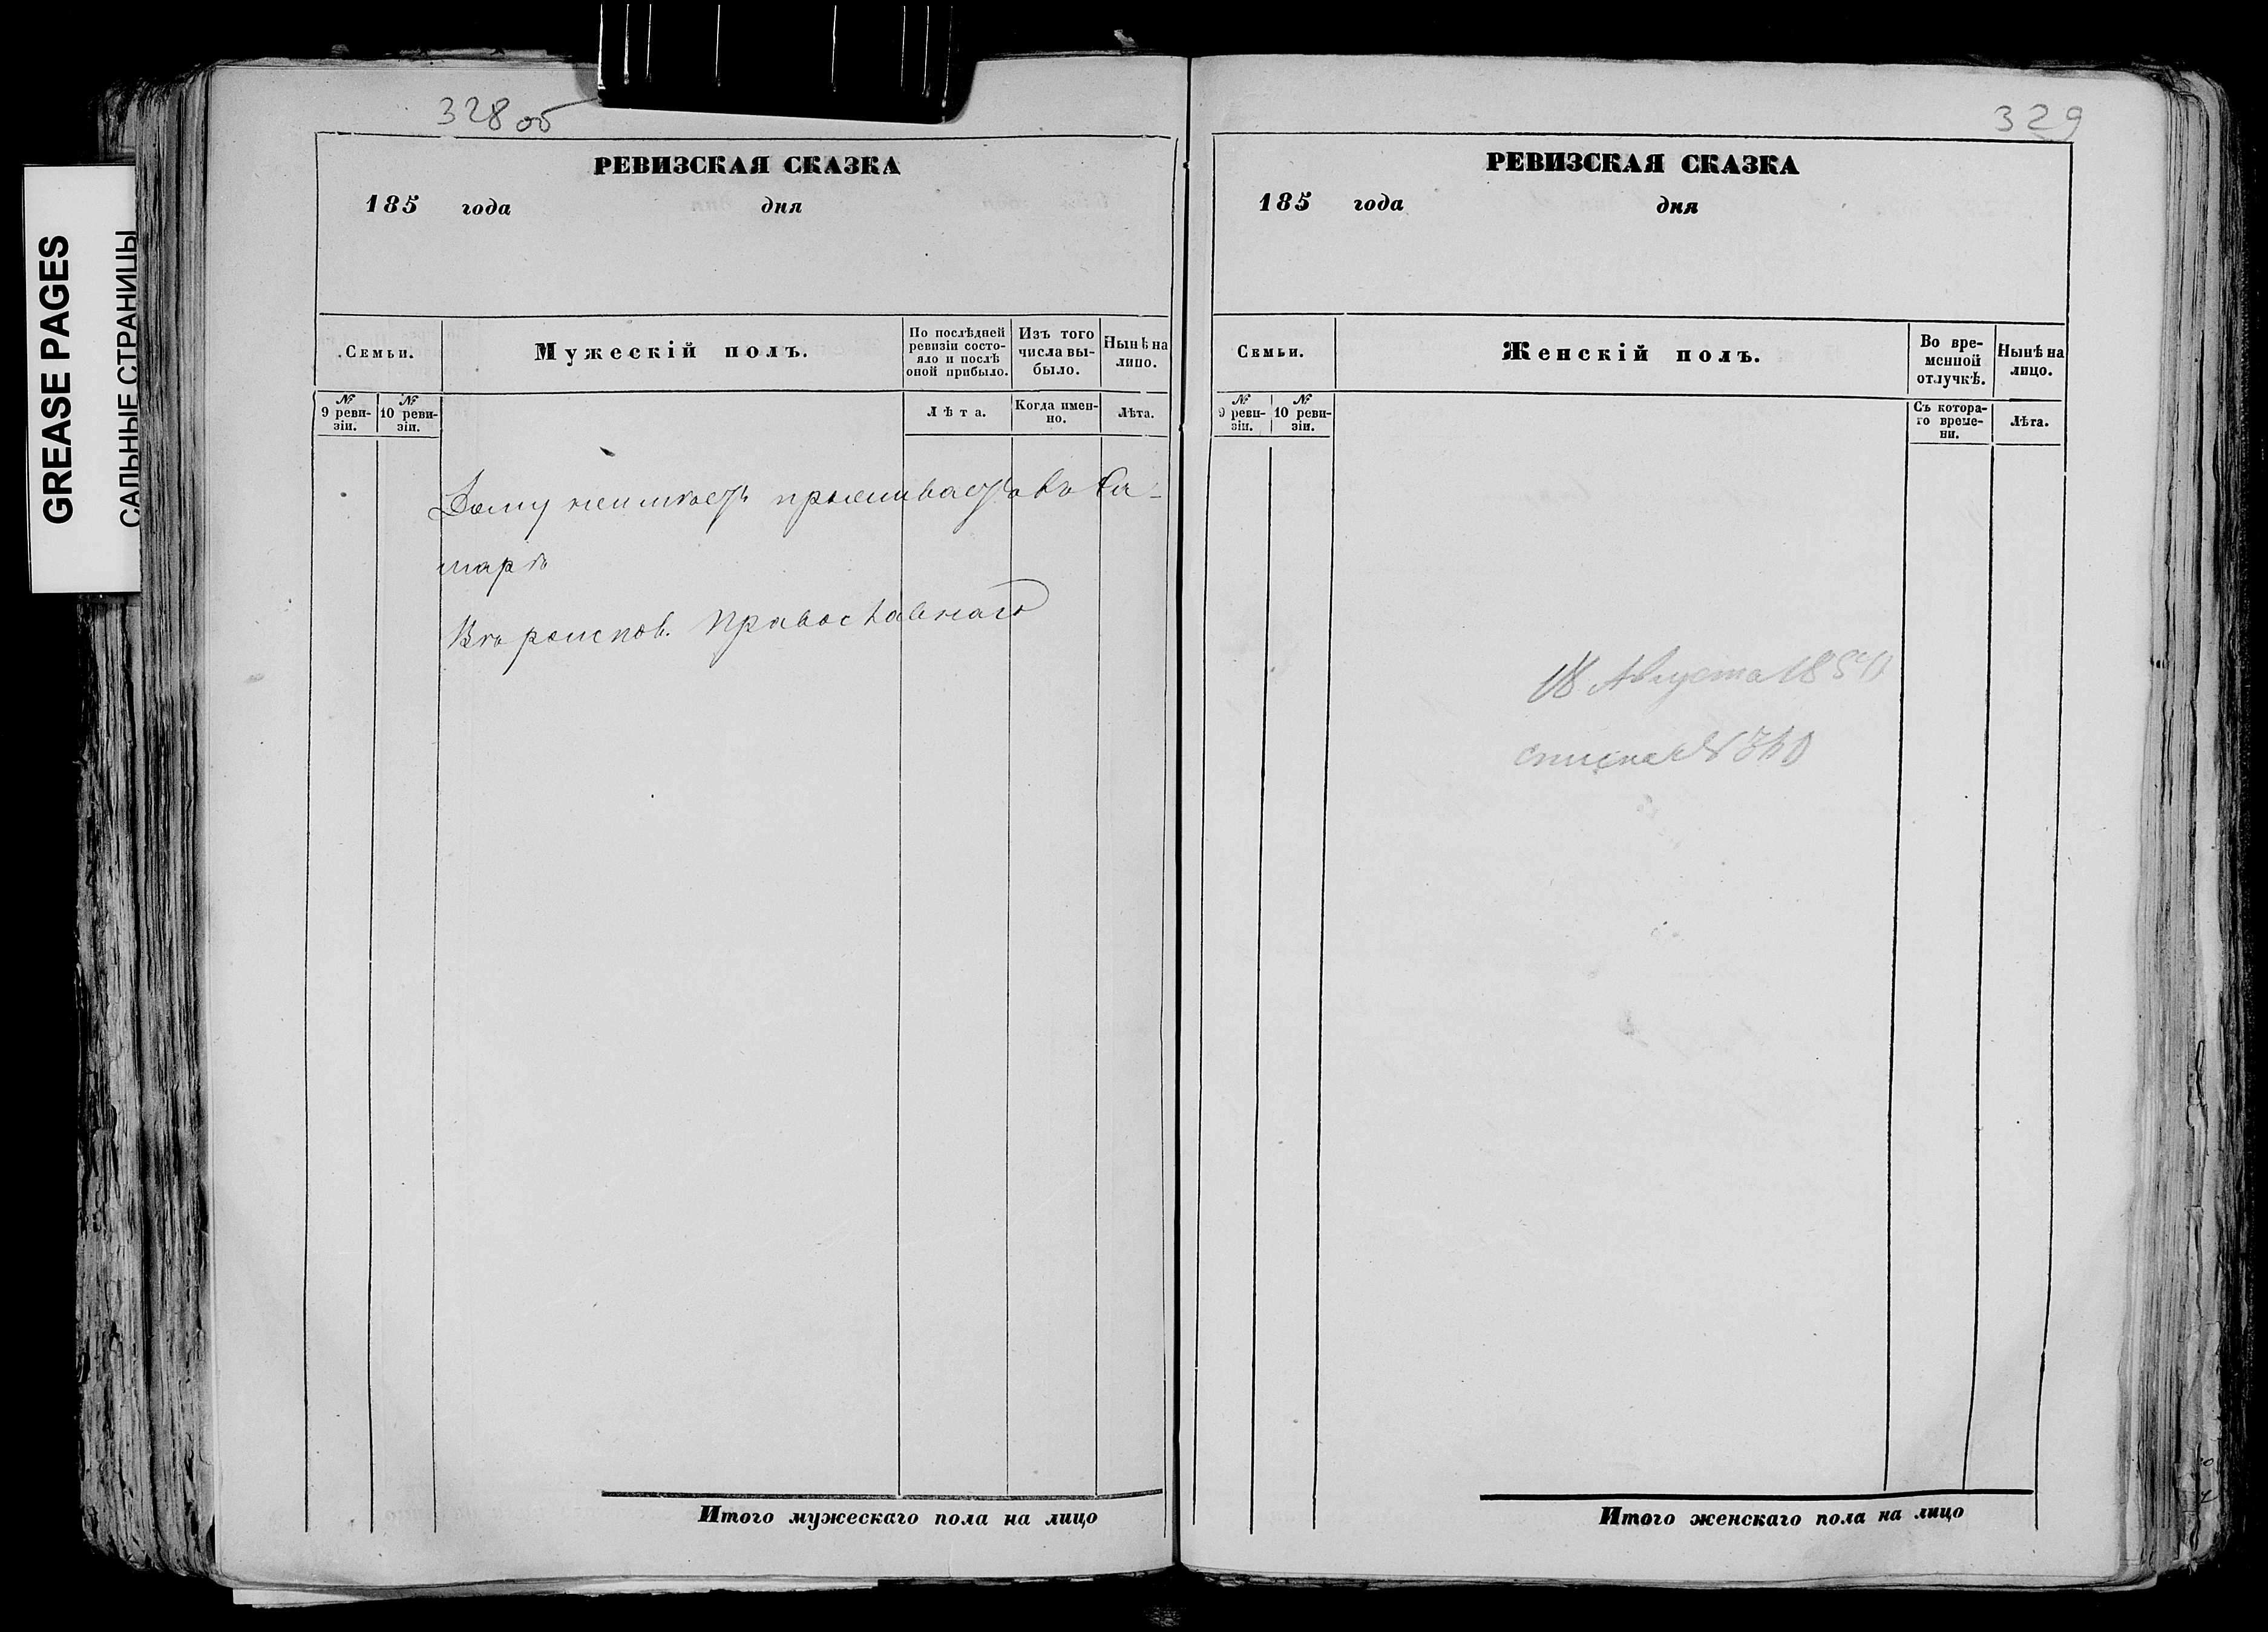 GREASE PAGES
САЛЬНЫЕ СТРАНИЦЫ
328 об
РЕВИЗСКАЯ СКАЗКА
185 года дня
Семьи.
Мужескій полъ.
По послѣдней ревизіи состояло и послѣ оной прибыло.
Изъ того числа выбыло.
Нынѣ на лицо.
№ 9 ревизіи.
№ 10 ревизіи.
Лѣта.
Когда именно.
Лѣта.
Дому неимѣетъ проживаетъ въ Са-
марѣ
Вѣроиспов. Православнаго
Итого мужескаго пола на лицо
329
РЕВИЗСКАЯ СКАЗКА
185 года дня
Семьи.
Женскій полъ.
Во временной отлучкѣ.
Нынѣ на лицо.
№ 9 ревизіи.
№ 10 ревизіи.
Съ котораго времени.
Лѣта.
18 Августа 1850
списка № 340
Итого женскаго пола на лицо